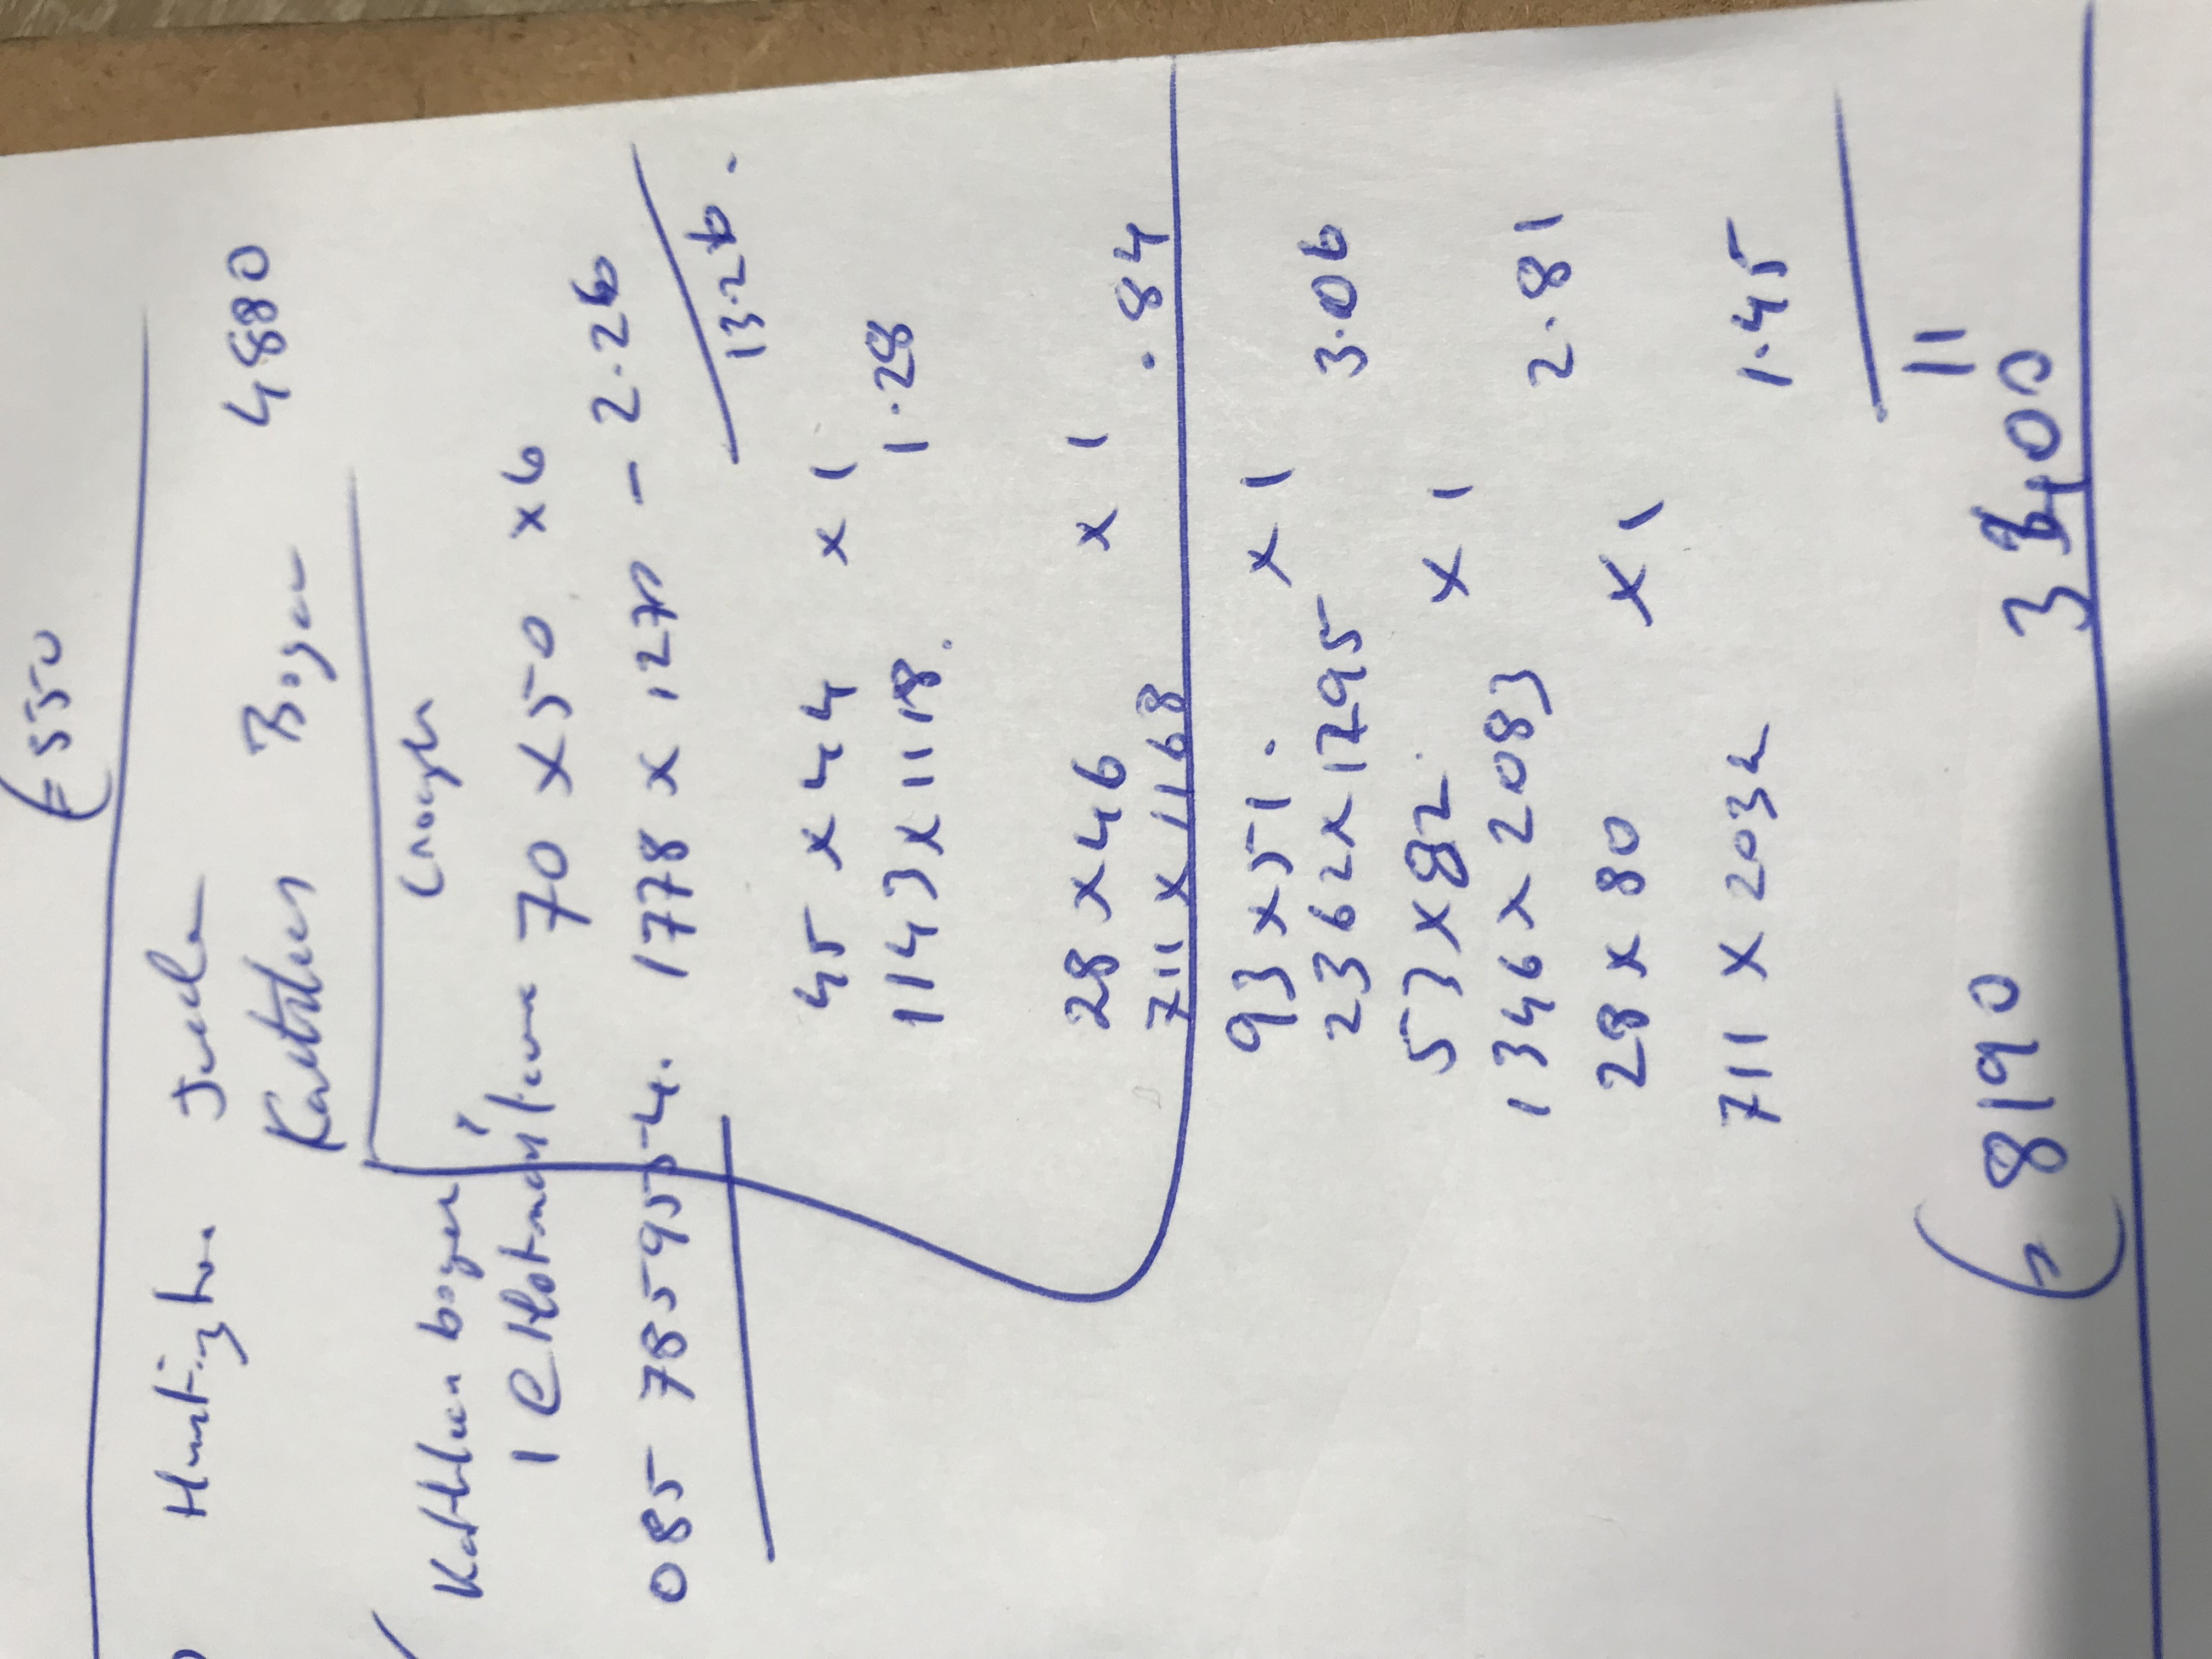 (= 550
Huntington Juela 4880
Kathleen Boyer
Kathleen boyer
1 @ Hotmail.com 70 x 50 x 6
085 7859554. 1778 x 1270 - 2.26
13.26.
45 x 44 x 1
1143 x 1118. 1.28
28 x 46 x 1
711 x 1168 .84
93 x 51. x 1
2362 x 1295 3.06
53 x 82. x 1
1346 x 2083 2.81
28 x 80 x 1
711 x 2032 1.45
11
(= 8190 00